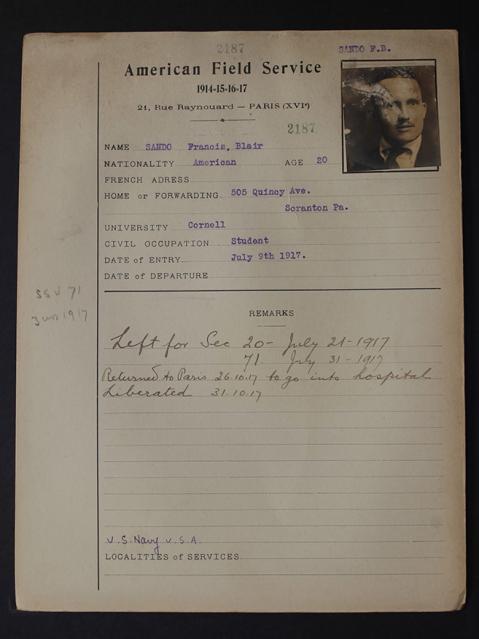 2187
SANDO F.B.
American Field Service
1914-15-16-17
21, Rue Raynouard — PARIS (XVIe)
2187
NAME SANDO Francis, Blair
NATIONALITY American AGE 20
FRENCH ADRESS
HOME or FORWARDING 505 Quincy Ave.
Scranton Pa.
UNIVERSITY Cornell
CIVIL OCCUPATION Student
DATE of ENTRY July 9th 1917.
DATE of DEPARTURE
SSU 71
1917
REMARKS
Left for Sec 20 - July 21 - 1917
71 July 31 - 1917
Returned to Paris 26.10.17 to go into hospital
Liberated 31.10.17
U.S. Navy U.S.A.
LOCALITIES of SERVICES